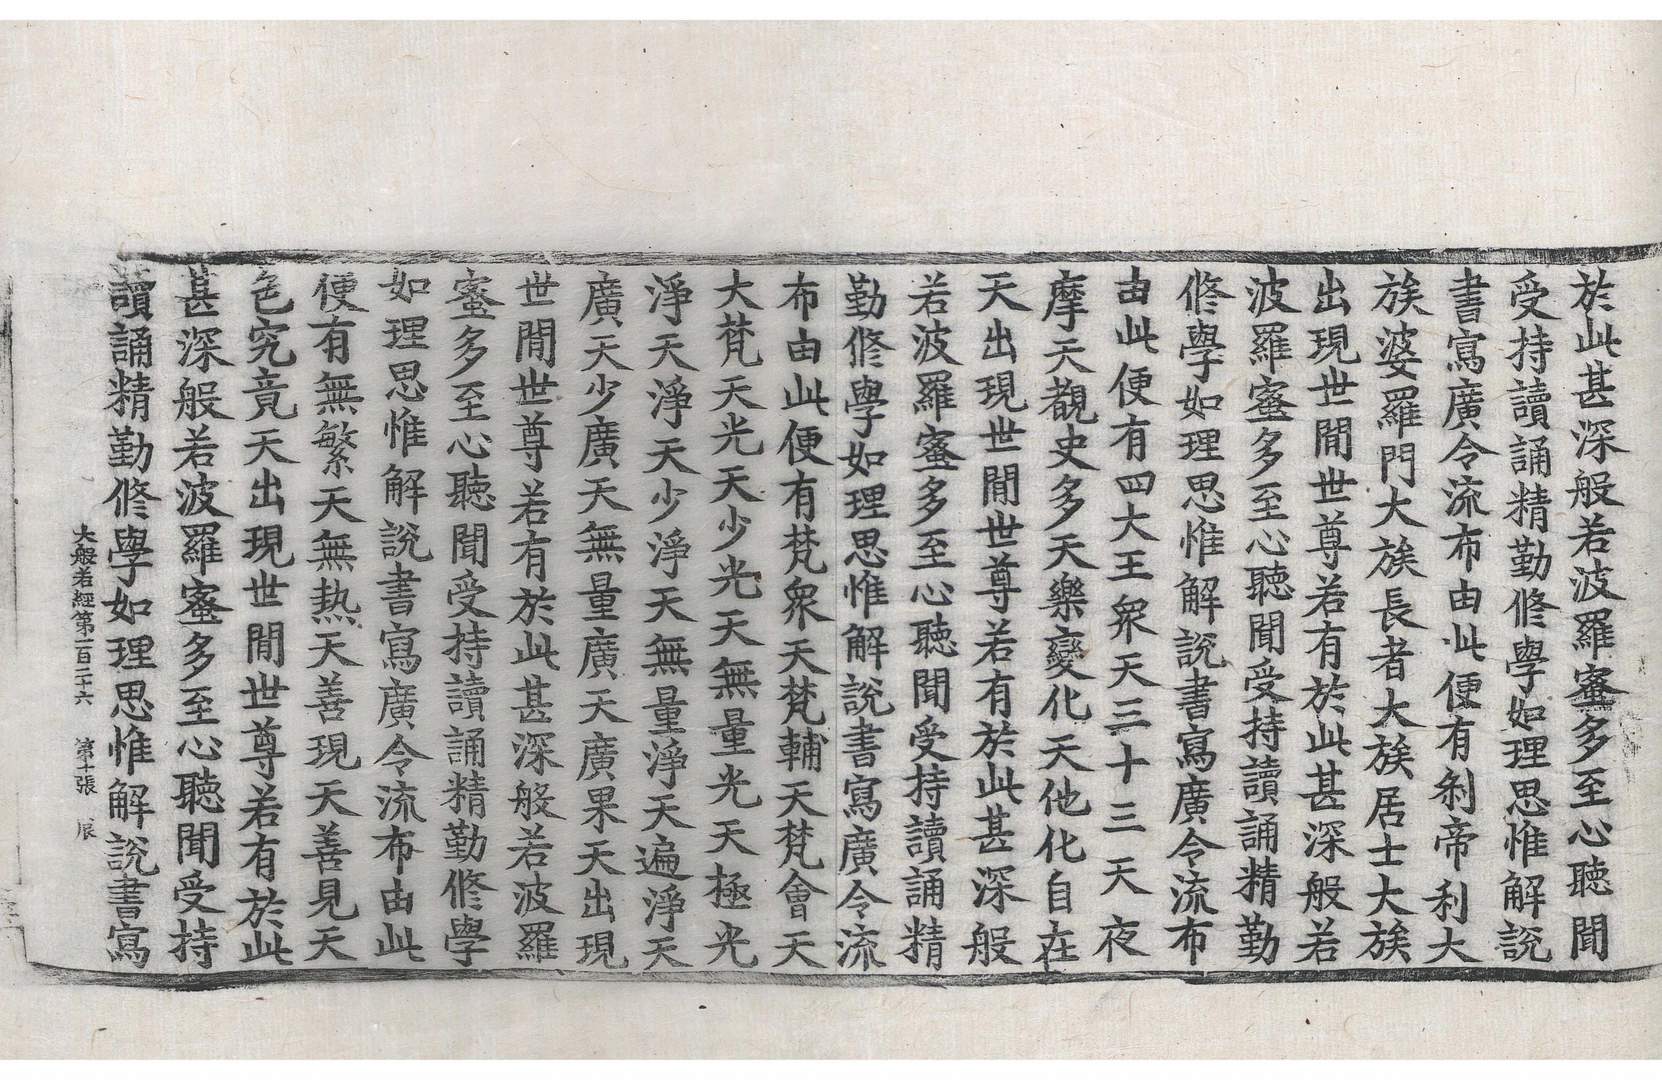 於此甚深般若波羅蜜多至心聽聞
受持讀誦精勤修學如理思惟解說
書寫廣令流布由此便有剎帝利大
族婆羅門大族長者大族居士大族
出現世閒世尊若有於此甚深般若
波羅蜜多至心聽聞受持讀誦精勤
修學如理思惟解說書寫廣令流布
由此便有四大王衆天三十三天夜
摩天覩史多天樂變化天他化自在
天出現世閒世尊若有於此甚深般
若波羅蜜多至心聽聞受持讀誦精
勤修學如理思惟解說書寫廣令流
布由此便有梵衆天梵輔天梵會天
大梵天光天少光天無量光天極光
淨天淨天少淨天無量淨天遍淨天
廣天少廣天無量廣天廣果天出現
世閒世尊若有於此甚深般若波羅
蜜多至心聽聞受持讀誦精勤修學
如理思惟解說書寫廣令流布由此
便有無繁天無熱天善現天善見天
色究竟天出現世閒世尊若有於此
甚深般若波羅蜜多至心聽聞受持
讀誦精勤修學如理思惟解說書寫
大般若經第一百二十六 第十張 辰